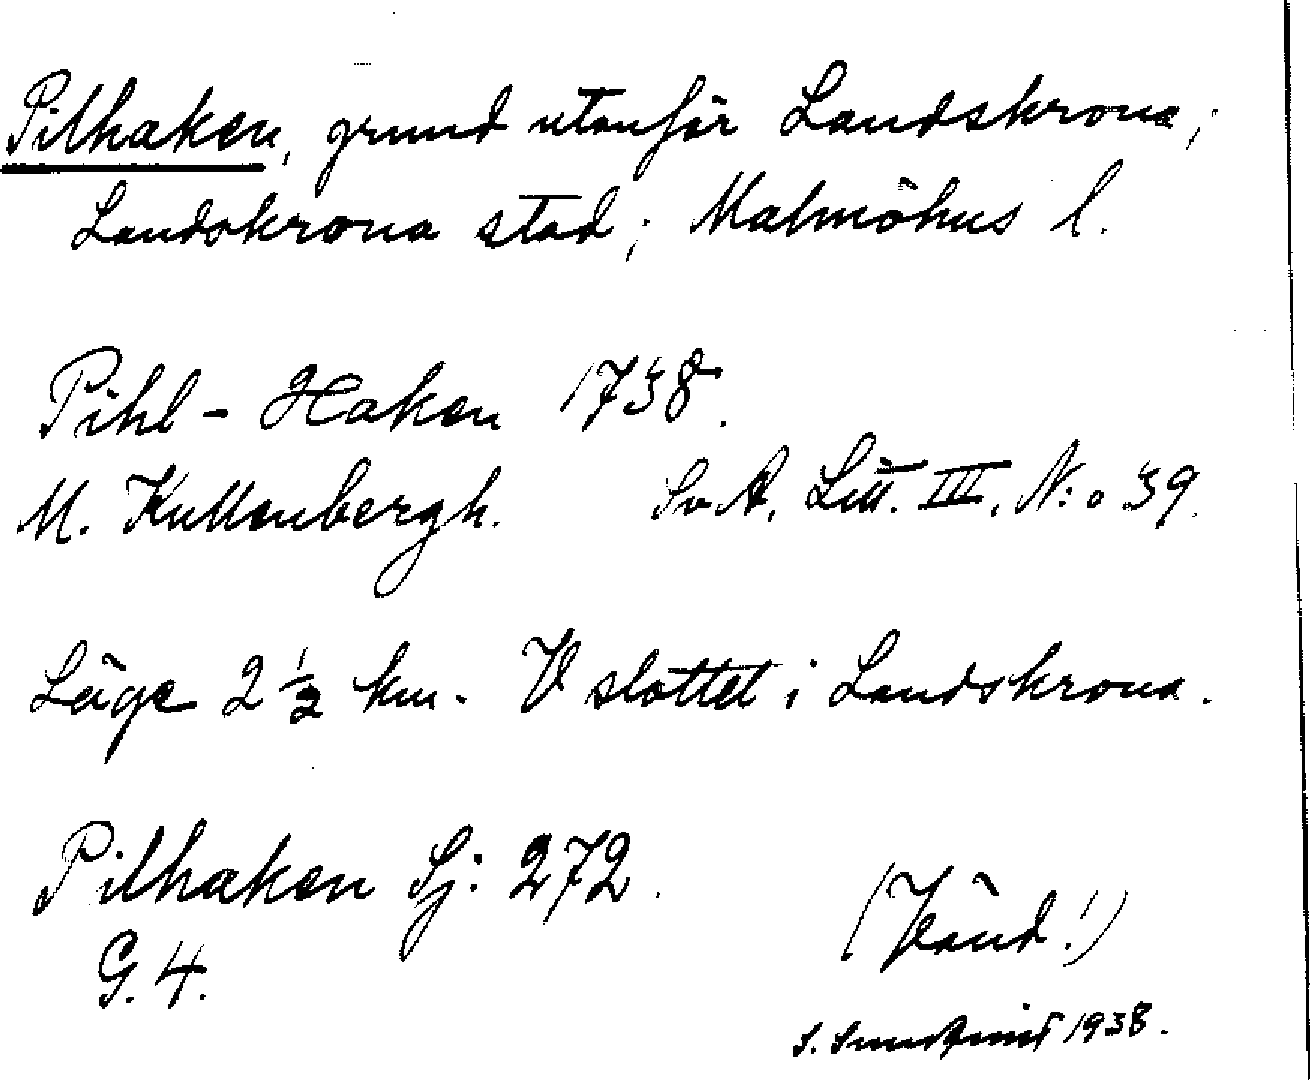 Pilhaken, grund utanför Landskrona;
Landskrona stad; Malmöhus l.
Pihl-Haken 1738.
M. Kullenbergh. SvA, Litt. III, N:o 39.
Läge 2 1/2 km. V slottet i Landskrona.
Pilhaken Sj: 272.
G. 4.
(Vänd!)
S. 1938.